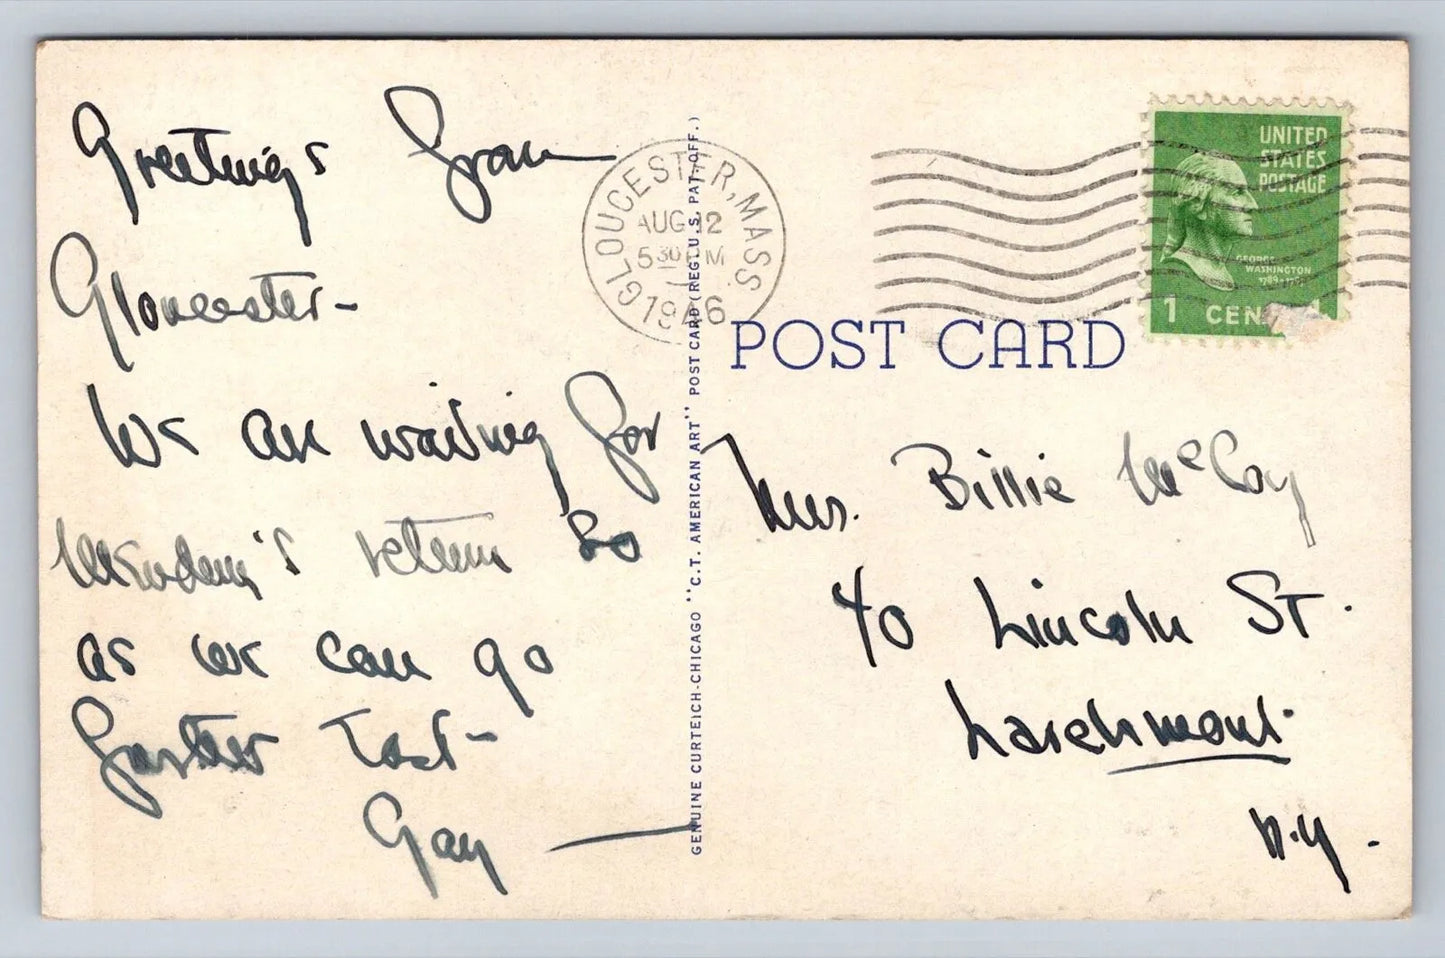 Greetings from
Gloucester-
We are waiting for
return so
as we can go
East-
Gay —
GENUINE CURTEICH-CHICAGO "C.T. AMERICAN ART" POST CARD (REG. U.S. PAT. OFF.)
GLOUCESTER, MASS
AUG 12
5 30 PM
1946
UNITED
STATES
POSTAGE
GEORGE
WASHINGTON
1 CEN
POST CARD
Mrs. Billie McCoy
40 Lincoln St.
Larchmont
N.Y.